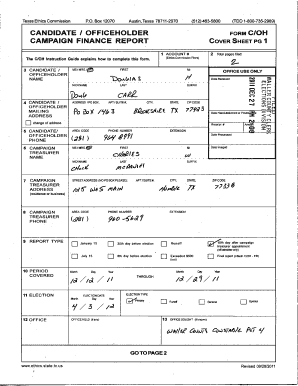 Texas Ethics Commission P.O. Box 12070 Austin, Texas 78711-2070 (512) 463-5800 (TDD 1-800-735-2989)
CANDIDATE / OFFICEHOLDER
CAMPAIGN FINANCE REPORT
FORM C/OH
COVER SHEET PG 1
The C/OH Instruction Guide explains how to complete this form.
1 ACCOUNT #
(Ethics Commission Filers)
2 Total pages filed:
2
3 CANDIDATE /
OFFICEHOLDER
NAME
MS / MRS / MR FIRST MI
Douglas H
NICKNAME LAST SUFFIX
Doug CARR
OFFICE USE ONLY
Date Received
4 CANDIDATE /
OFFICEHOLDER
MAILING
ADDRESS
change of address
ADDRESS / PO BOX; APT / SUITE #; CITY; STATE; ZIP CODE
PO BOX 1463 BROOKSHIRE TX 77423
5 CANDIDATE/
OFFICEHOLDER
PHONE
AREA CODE PHONE NUMBER EXTENSION
(281)
6 CAMPAIGN
TREASURER
NAME
MS / MRS / MR FIRST MI
CHARLES W
NICKNAME LAST SUFFIX
Chuck
7 CAMPAIGN
TREASURER
ADDRESS
(residence or business)
STREET ADDRESS (NO PO BOX PLEASE); APT / SUITE #; CITY; STATE; ZIP CODE
MAIN Humble TX 77338
8 CAMPAIGN
TREASURER
PHONE
AREA CODE PHONE NUMBER EXTENSION
(281)
9 REPORT TYPE
January 15
30th day before election
Runoff
15th day after campaign
treasurer appointment
(officeholder only)
July 15
8th day before election
Exceeded $500
limit
Final report (Attach C/OH - FR)
10 PERIOD
COVERED
Month Day Year
12 / 12 / 11
THROUGH
Month Day Year
12 / 29 / 11
11 ELECTION
ELECTION DATE
Month Day Year
4 / 3 / 12
ELECTION TYPE
Primary
Runoff
General
Special
12 OFFICE
OFFICE HELD (if any)
13 OFFICE SOUGHT (if known)
WALLER COUNTY CONSTABLE PCT 4
GO TO PAGE 2
www.ethics.state.tx.us
Revised 09/28/2011